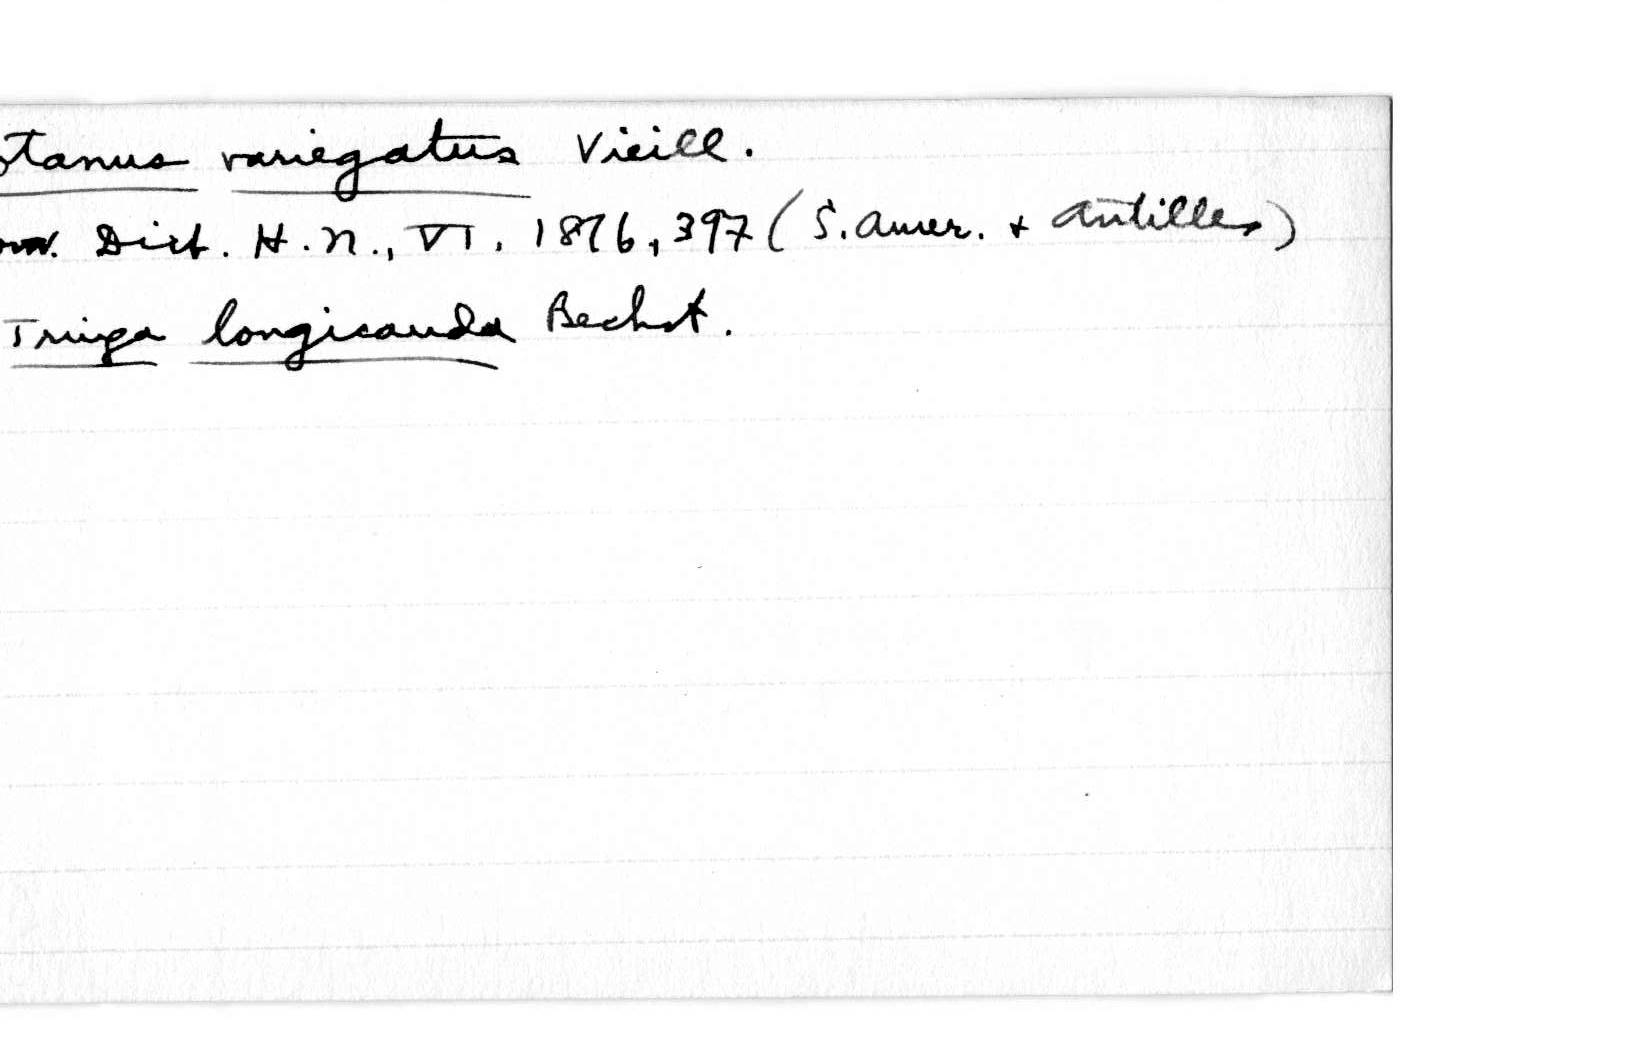 otanus variegatus Vieill.
Dict. H.N., VI, 1816, 397 (S. Amer. + Antilles)
Tringa longicauda Bechst.